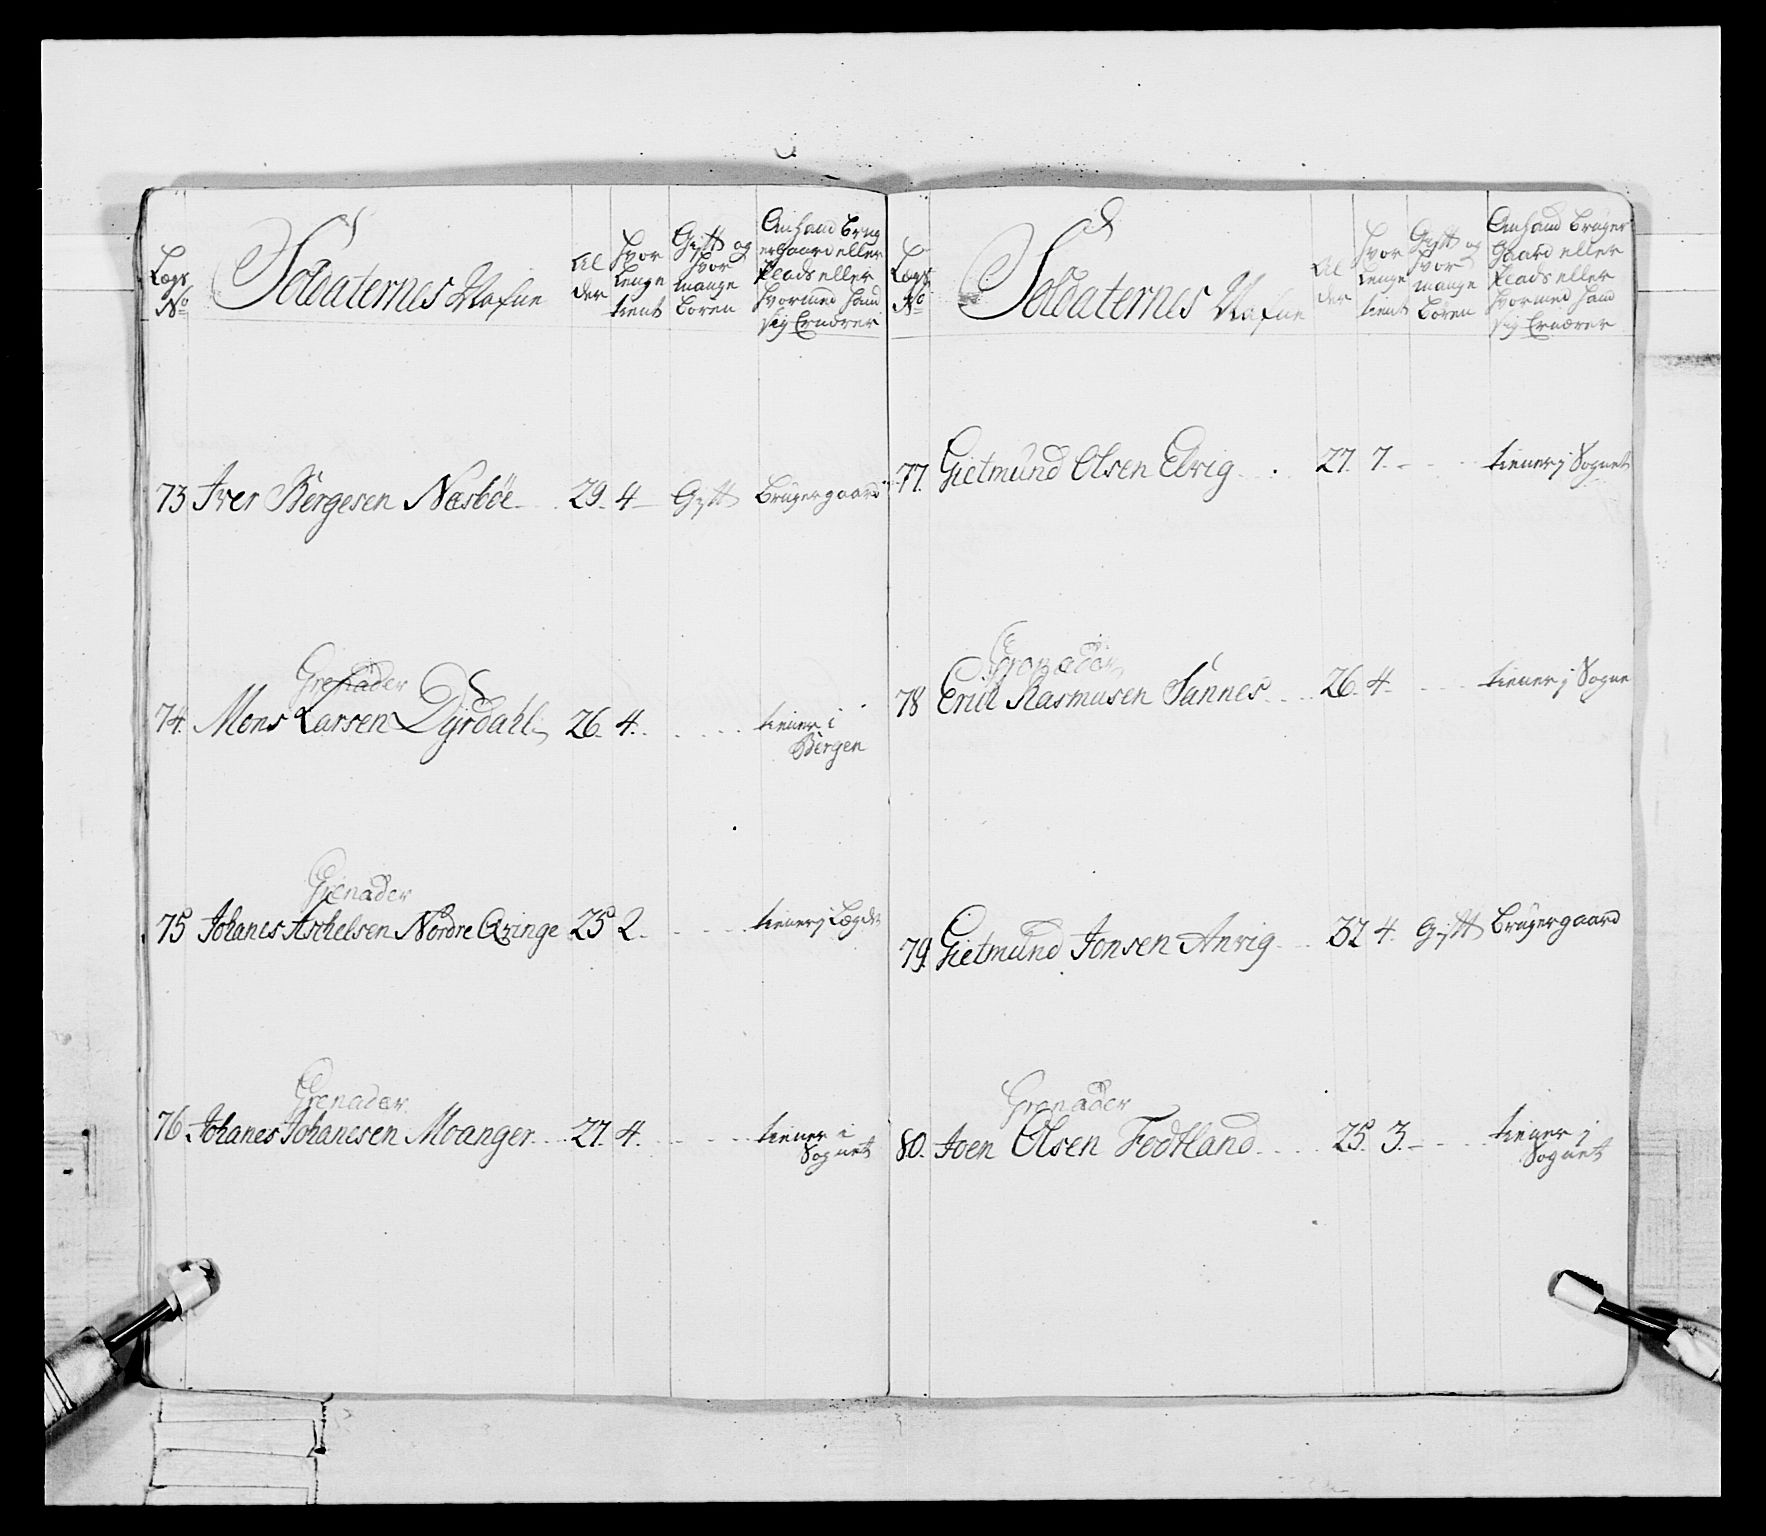 Lægs No
Soldaternes Nafne
Al der
hvor lenge tient
Gift og hvor mange børen
Om hand brug er gaard eller plads eller hvormed hand sig Ernærer
73 Iver Bergesen Næsbøe 29. 4 Gift Bruger gaard
Grenader
74. Mons Larsen Dyrdahl 26. 4. tiener i
Bergen
Grenader
75 Johanes Askelsen Nordre Qvinge 25 2. tiener j Lægdet
Grenader
76. Johanes Johanesen Moanger 27. 4. tiener i
Sognet
Lægs No
Soldaternes Nafne
Al der
hvor lenge tient
Gift og hvor mange børen
Om hand bruger gaard eller plads eller hvormed hand sig Ernærer
77. Gietmund Olsen Elvig 27. 7. tiener j Sognet
Grenader
78 Erich Rasmusen Sannes 26. 4. tiener j Sogne
79. Gietmund Jonsen Anvig 32 4. Gift Bruger gaard
Grenader
80. Joen Olsen Fodtland 25. 3. tiener j
Sognet